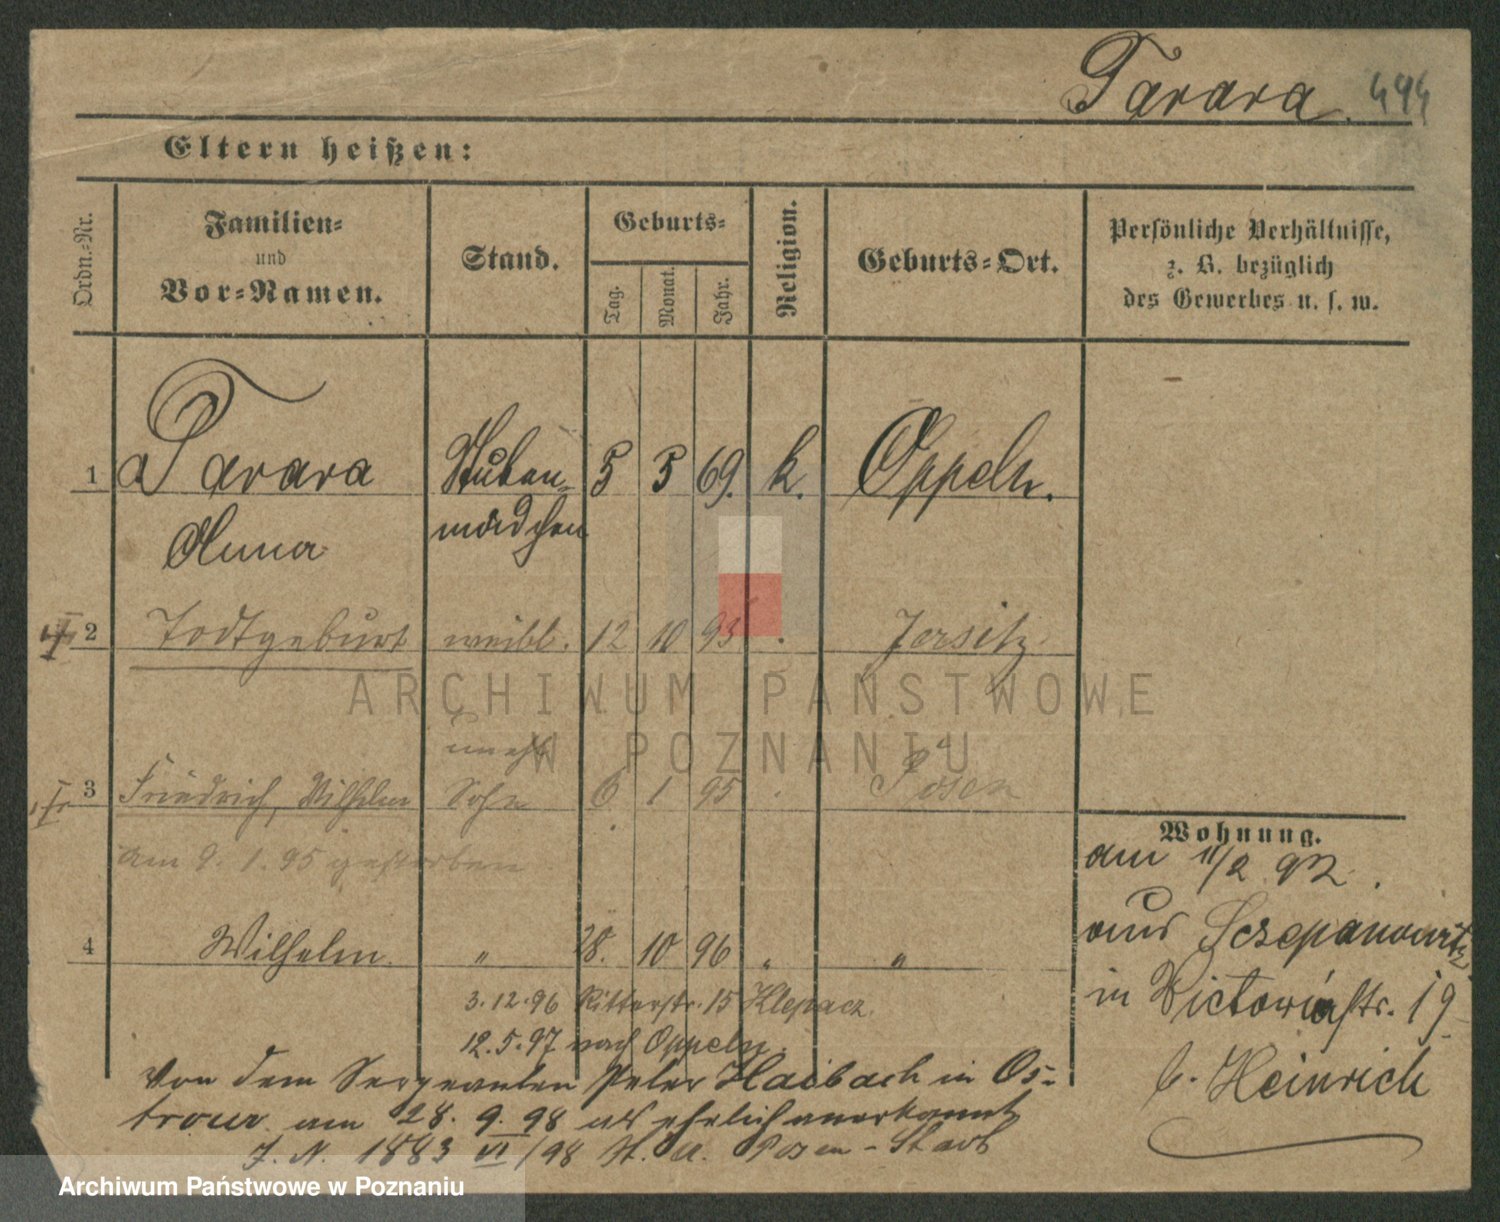 Tarara. 494
Eltern heißen:
Ordn.-Nr.
Familien-
und
Vor-Namen.
Stand.
Geburts-
Tag.
Monat.
Jahr.
Religion.
Geburts-Ort.
Persönliche Verhältnisse,
z. B. bezüglich
des Gewerbes u. s. w.
1 Tarara Stuben- 5 5 69. k. Oppeln.
Anna mädchen
2 Todtgeburt weibl. 12 10 93 . Jersitz
unehl.
3 Friedrich, Wilhelm Sohn 6 1 95 . Posen
am 9. 1. 95 gestorben
4 Wilhelm. " 28. 10 96 " "
3.12.96 Ritterstr. 15 Klepacz.
12.5.97 nach Oppeln.
Von dem Sergeanten Peter Haibach in Os-
trowo am 28. 9. 98 als ehelich anerkannt
J. N. 1883 VI/98 St. A. Posen-Stadt
Wohnung.
am 11/2 92.
aus Sczepanowitz
in Victoriastr. 19
b. Heinrich
ARCHIWUM PAŃSTWOWE
W POZNANIU
Archiwum Państwowe w Poznaniu